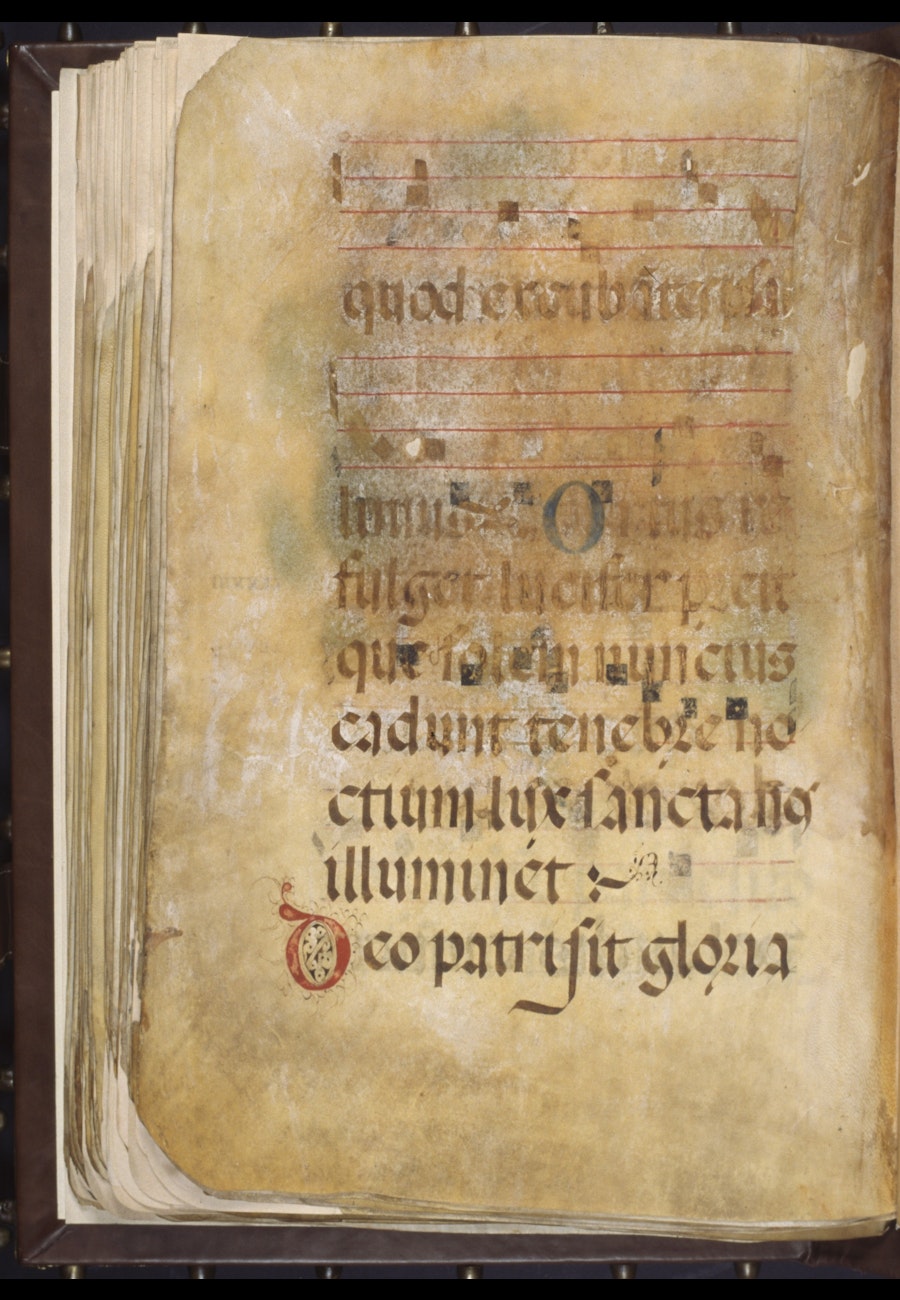 quod
Ortus re
fulget lucifer preit
que solem nuncius
cadunt tenebre no
ctium lux sancta nos
illuminet :
Deo patri sit gloria